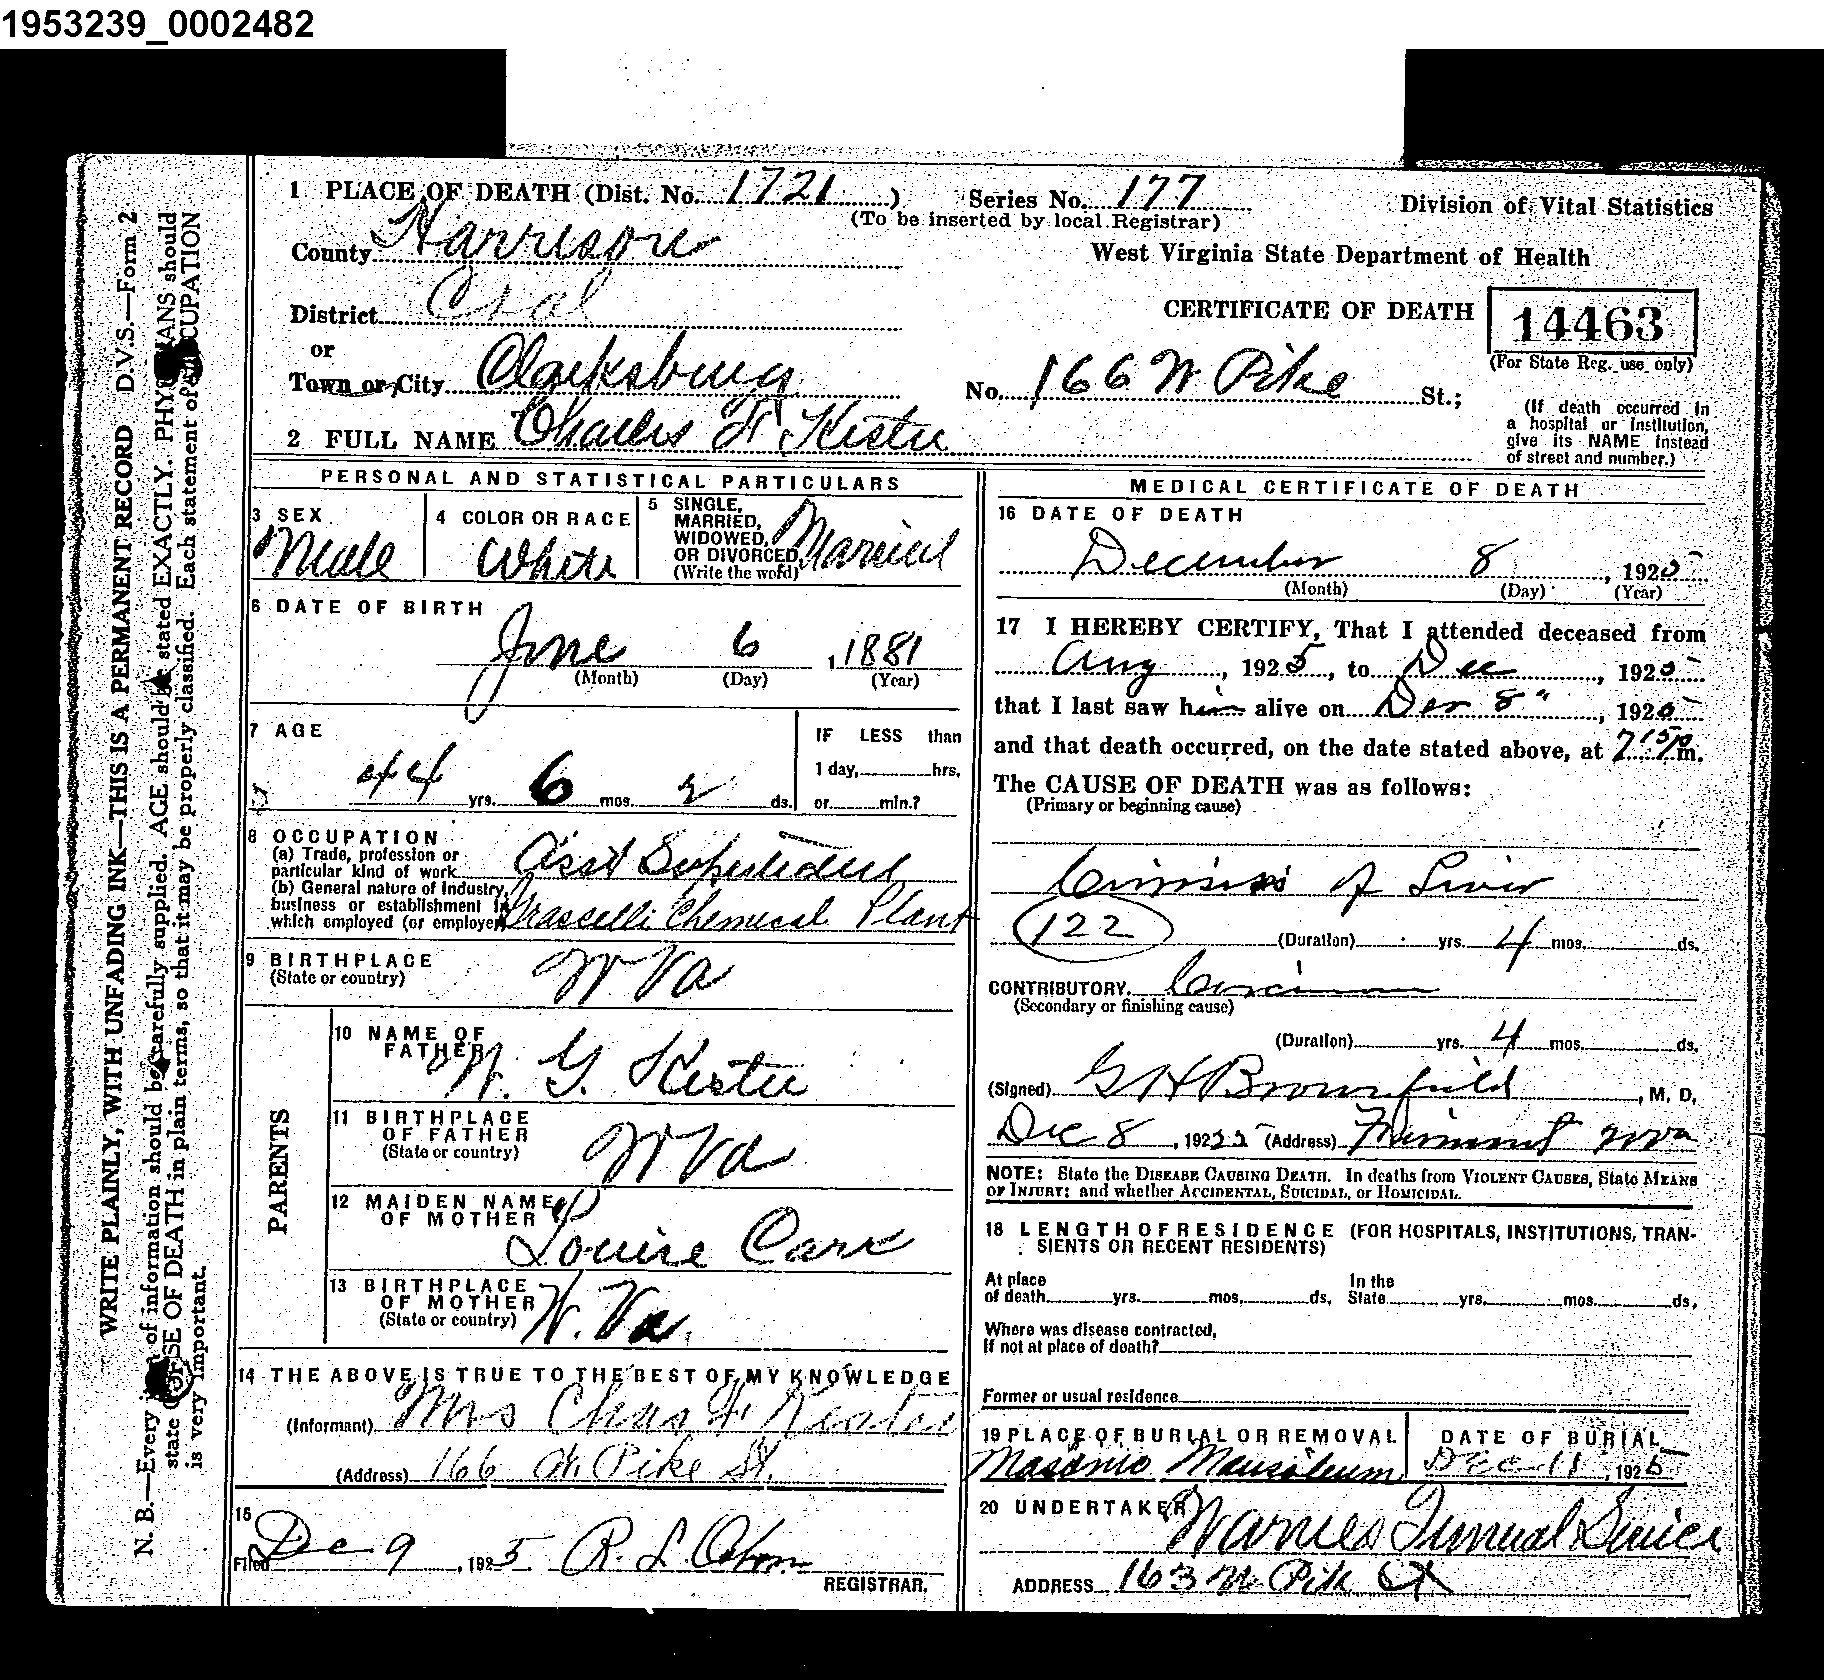 1953239_0002482
WRITE PLAINLY, WITH UNFADING INK—THIS IS A PERMANENT RECORD D.V.S.—Form 2
N. B.—Every of information should be carefully supplied. AGE should be stated EXACTLY. PHYSICIANS should
state CAUSE OF DEATH in plain terms, so that it may be properly classified. Each statement of OCCUPATION
is very important.
1 PLACE OF DEATH (Dist. No. 1721 )
Series No. 177
(To be inserted by local Registrar)
Division of Vital Statistics
County Harrison
West Virginia State Department of Health
District Coal
CERTIFICATE OF DEATH
14463
(For State Reg. use only)
or
Town or City Clarksburg
No. 166 W Pike St.;
(If death occurred in
a hospital or institution,
give its NAME instead
of street and number.)
2 FULL NAME Charles F. Kester
PERSONAL AND STATISTICAL PARTICULARS
3 SEX
Male
4 COLOR OR RACE
White
5 SINGLE,
MARRIED,
WIDOWED,
OR DIVORCED
(Write the word)
Married
6 DATE OF BIRTH
June 6, 1881
(Month) (Day) (Year)
7 AGE
44 yrs. 6 mos. 2 ds.
IF LESS than
1 day, hrs.
or min.?
8 OCCUPATION
(a) Trade, profession or
particular kind of work Asst Supertedent
(b) General nature of Industry,
business or establishment in
which employed (or employer) Grasselli Chemical Plant
9 BIRTHPLACE
(State or country)
W Va
PARENTS
10 NAME OF
FATHER W. G. Kester
11 BIRTHPLACE
OF FATHER
(State or country)
W Va
12 MAIDEN NAME
OF MOTHER
Louise Carr
13 BIRTHPLACE
OF MOTHER
(State or country) W. Va.
14 THE ABOVE IS TRUE TO THE BEST OF MY KNOWLEDGE
(Informant) Mrs Chas F. Kester
(Address) 166 W. Pike St.
15
Filed Dec 9, 1925 R. L. Osborn
REGISTRAR.
MEDICAL CERTIFICATE OF DEATH
16 DATE OF DEATH
December 8, 1925
(Month) (Day) (Year)
17 I HEREBY CERTIFY, That I attended deceased from
Aug, 1925, to Dec, 1925
that I last saw him alive on Dec 8", 1925
and that death occurred, on the date stated above, at 7 15 P m.
The CAUSE OF DEATH was as follows:
(Primary or beginning cause)
Cirrhosis of Liver
122
(Duration) yrs. 4 mos. ds.
CONTRIBUTORY. Carcinoma
(Secondary or finishing cause)
(Duration) yrs. 4 mos. ds.
(Signed) G H Brownfield, M. D.
Dec 8, 19225 (Address) Fairmont W Va
NOTE: State the DISEASE CAUSING DEATH. In deaths from VIOLENT CAUSES, State MEANS
OF INJURY; and whether ACCIDENTAL, SUICIDAL, or HOMICIDAL.
18 LENGTH OF RESIDENCE (FOR HOSPITALS, INSTITUTIONS, TRAN-
SIENTS OR RECENT RESIDENTS)
At place
of death yrs. mos. ds.
In the
State yrs. mos. ds.
Where was disease contracted,
If not at place of death?
Former or usual residence
19 PLACE OF BURIAL OR REMOVAL
Masonic Mausoleum
DATE OF BURIAL
Dec 11, 1925
20 UNDERTAKER
Funeral Service
ADDRESS 163 W Pike St